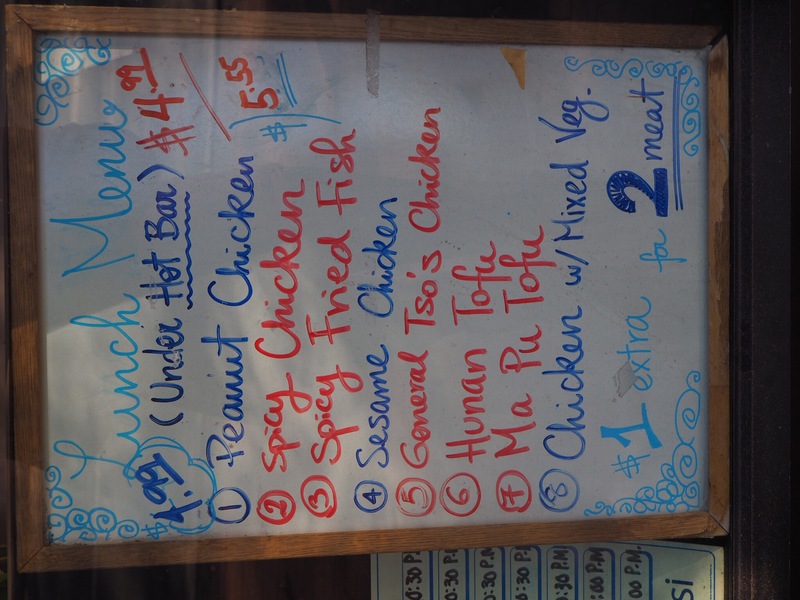 Lunch Menu
$4.99 (Under Hot Bar) $4.99
$5.55
① Peanut Chicken
② Spicy Chicken
③ Spicy Fried Fish
④ Sesame Chicken
⑤ General Tso's Chicken
⑥ Hunan Tofu
⑦ Ma Pu Tofu
⑧ Chicken w/ Mixed Veg.
$1 extra for 2 meat
0:30 P.M
0:30 P.M
0:30 P.M
:30 P.M
:00 P.M
00 P.M.
si